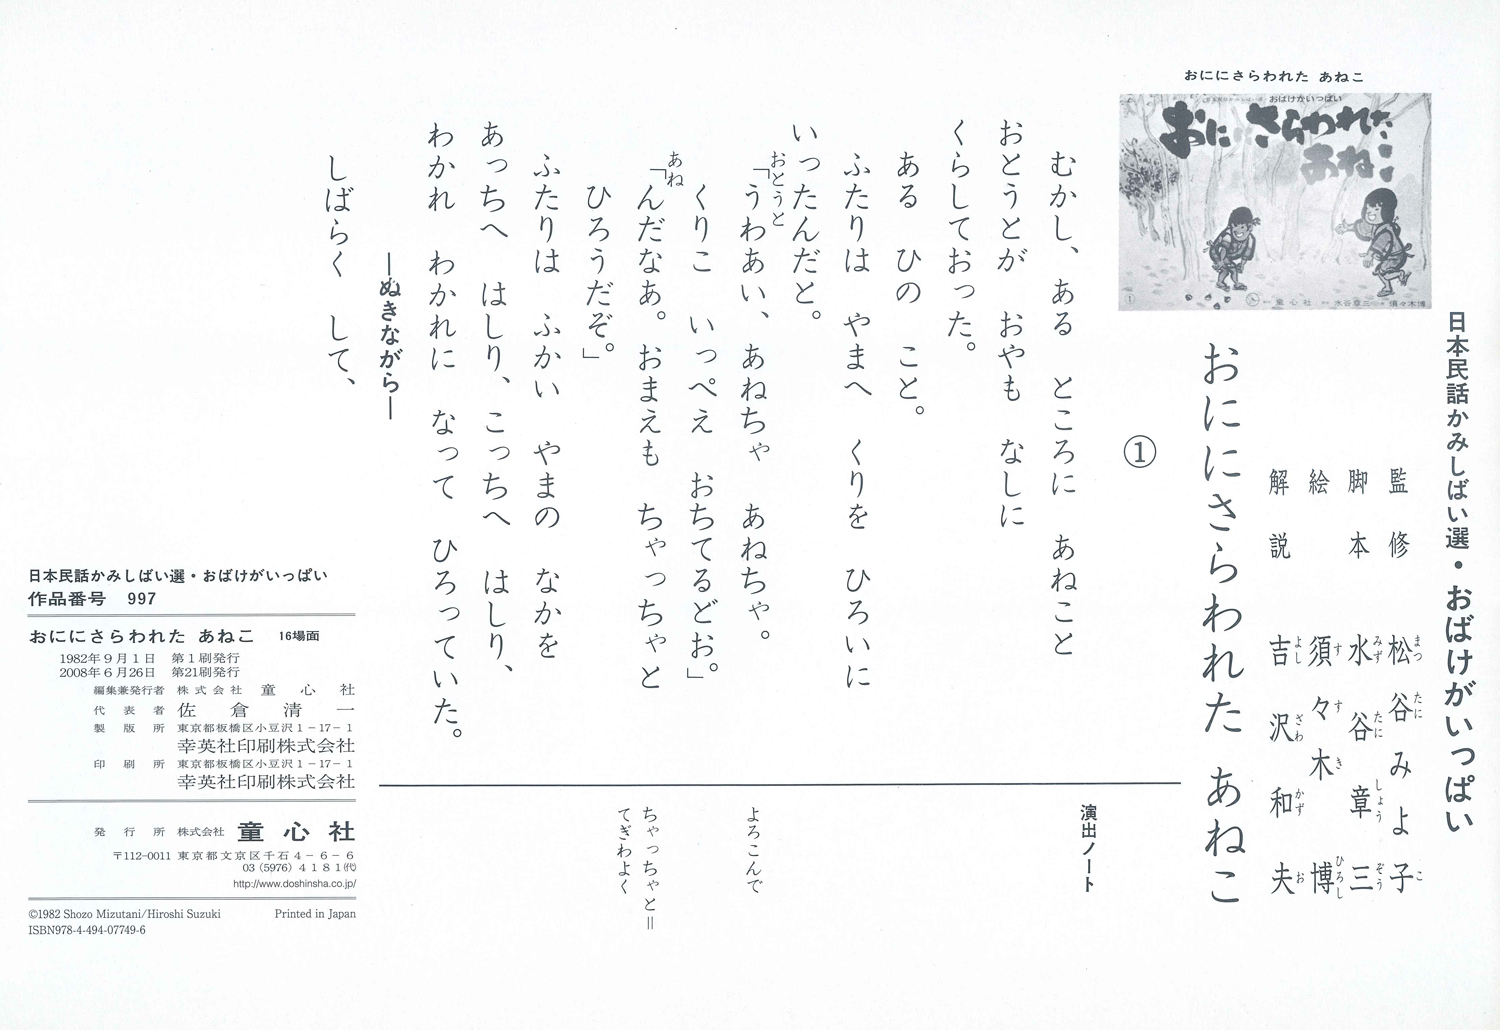 日本民話かみしばい選・おばけがいっぱい
監修 松谷みよ子
まつ たに こ
脚本 水谷章三
みず たに しょう ぞう
絵 須々木博
す す き ひろし
解説 吉沢和夫
よし ざわ かず お
おににさらわれた あねこ
おばけがいっぱい
おににさらわれた
あねこ
① 童心社 水谷章三 須々木博
おににさらわれた あねこ
①
むかし、ある ところに あねこと
おとうとが おやも なしに
くらしておった。
ある ひの こと。
ふたりは やまへ くりを ひろいに
いったんだと。
おとうと
「うわあい、あねちゃ あねちゃ。
くりこ いっぺえ おちてるどお。」
あね
「んだなあ。おまえも ちゃっちゃと
ひろうだぞ。」
ふたりは ふかい やまの なかを
あっちへ はしり、こっちへ はしり、
わかれ わかれに なって ひろっていた。
―ぬきながら―
しばらく して、
演出ノート
よろこんで
ちゃっちゃと＝
てぎわよく
日本民話かみしばい選・おばけがいっぱい
作品番号 997
おににさらわれた あねこ 16場面
1982年9月1日 第1刷発行
2008年6月26日 第21刷発行
編集兼発行者 株式会社 童心社
代表者 佐倉清一
製版所 東京都板橋区小豆沢1-17-1
幸英社印刷株式会社
印刷所 東京都板橋区小豆沢1-17-1
幸英社印刷株式会社
発行所 株式会社 童心社
〒112-0011 東京都文京区千石4-6-6
03(5976)4181(代)
http://www.doshinsha.co.jp/
©1982 Shozo Mizutani/Hiroshi Suzuki Printed in Japan
ISBN978-4-494-07749-6